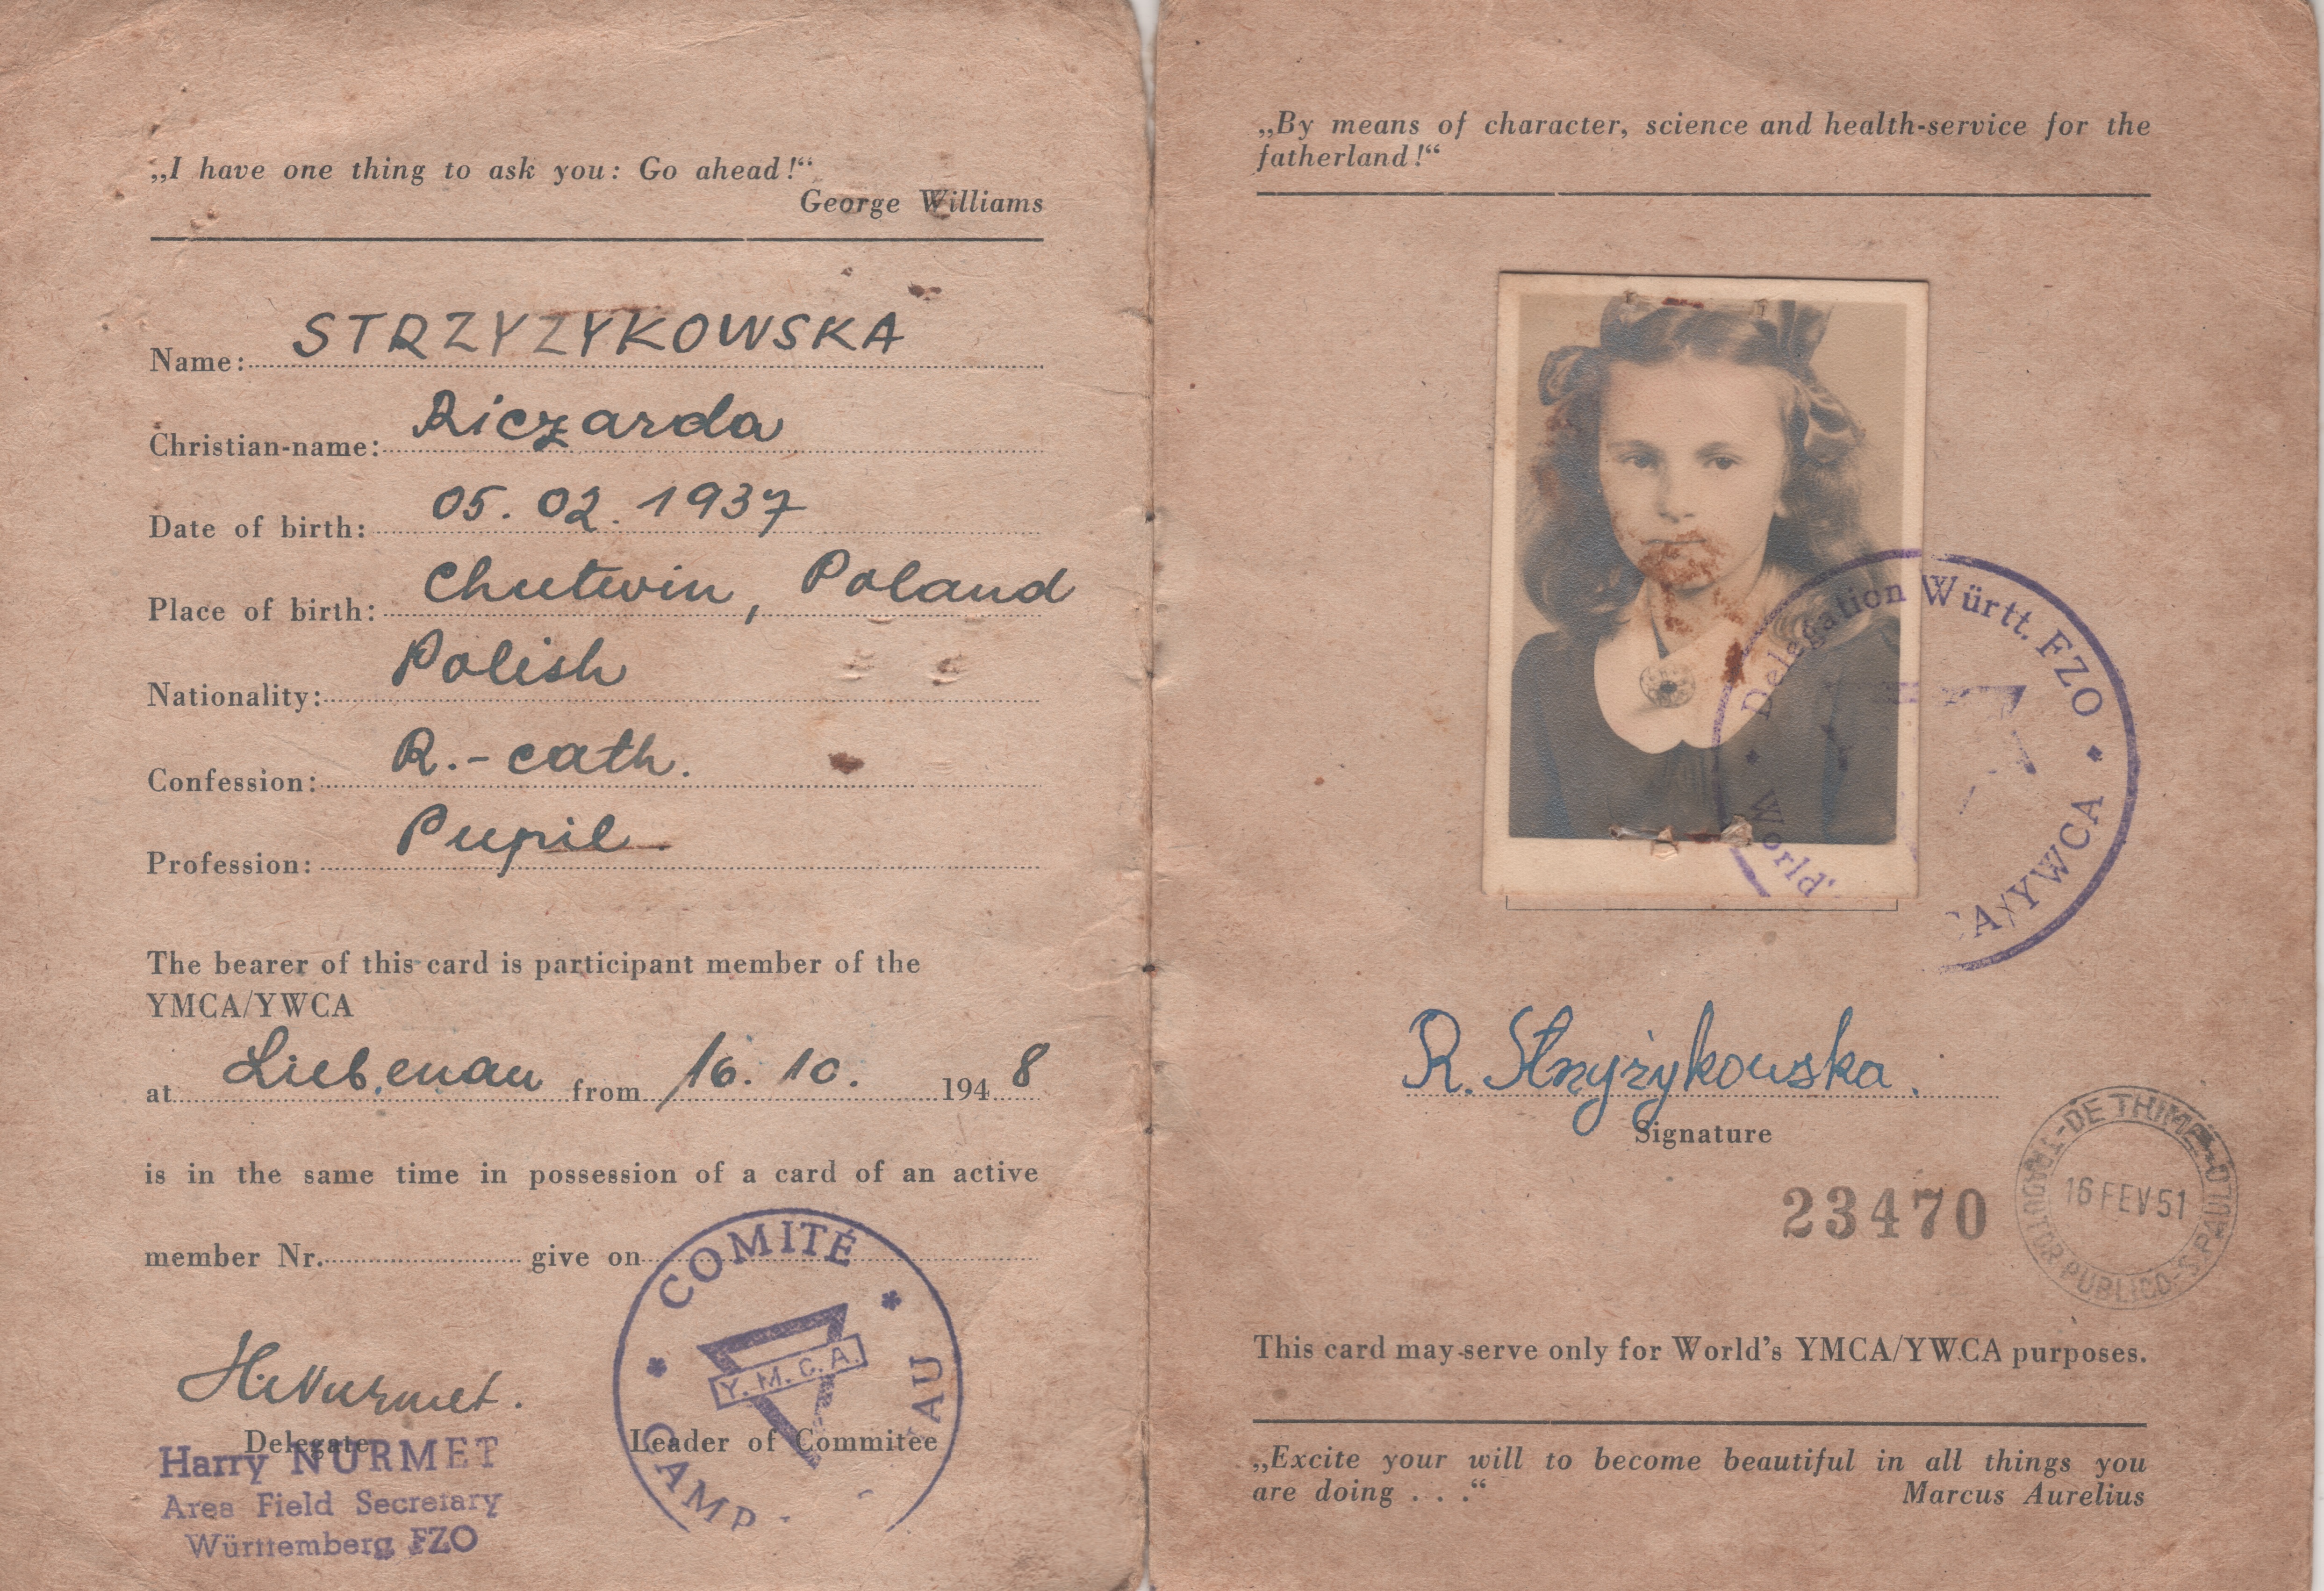 „I have one thing to ask you: Go ahead!“
George Williams
Name: STRZYZYKOWSKA
Christian-name: Riczarda
Date of birth: 05. 02. 1937
Place of birth: Chutwin, Poland
Nationality: Polish
Confession: R.-cath.
Profession: Pupil
The bearer of this card is participant member of the
YMCA/YWCA
at Liebenau from 16. 10. 194 8
is in the same time in possession of a card of an active
member Nr. give on
COMITÉ
Y.M.C.A.
CAMP
AU
H. Nurmet.
Delegate
Leader of Commitee
Harry NURMET
Area Field Secretary
Württemberg FZO
„By means of character, science and health-service for the
fatherland!“
Delegation Württ. FZO
World' A/YWCA
R. Strzyżykowska.
Signature
23470
16 FEV 51
PUBLICO
This card may serve only for World's YMCA/YWCA purposes.
„Excite your will to become beautiful in all things you
are doing . . .“
Marcus Aurelius